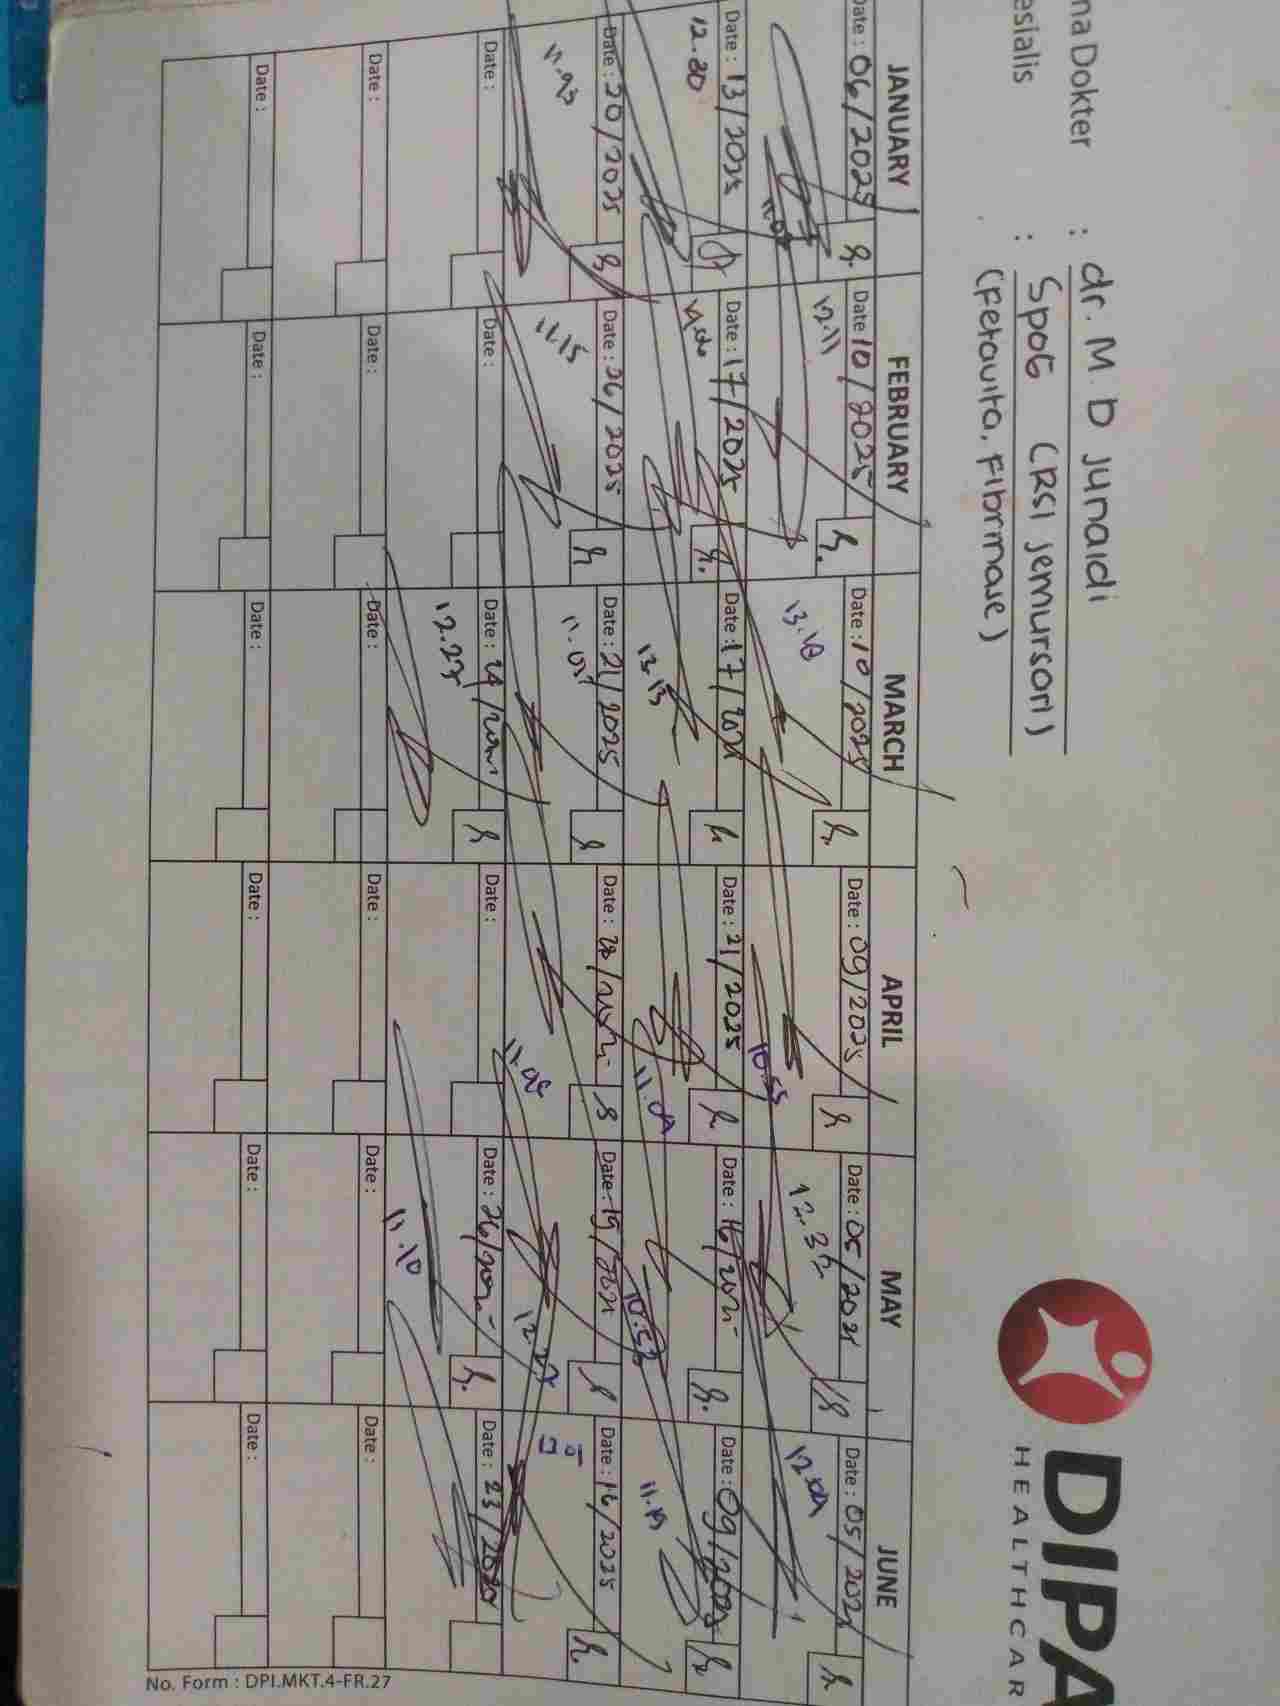 DIPA
HEALTHCAR
na Dokter : dr. M. D Junaidi
esialis : SpOG (RSI Jemursari)
(Fetavita, Fibrimase)
JANUARY FEBRUARY MARCH APRIL MAY JUNE
Date : 06/2025 Date : 10/2025 Date : 10/2025 Date : 09/2025 Date : 05/2025 Date : 05/2025
12.11 13.10
Date : 13/2025 Date : 17/2025 Date : 17/2025 Date : 21/2025 Date : 16/2025 Date : 09/2025
12.30 13.13 10.55
Date : 20/2025 Date : 26/2025 Date : 21/2025 Date : 28/2025 Date : 19/2025 Date : 16/2025
11.15 10.53 11.19
Date : Date : Date : 24/2025 Date : Date : 26/2025 Date : 23/2025
12.23
Date : Date : Date : Date : Date : Date :
11.10
Date : Date : Date : Date : Date : Date :
No. Form : DPI.MKT.4-FR.27